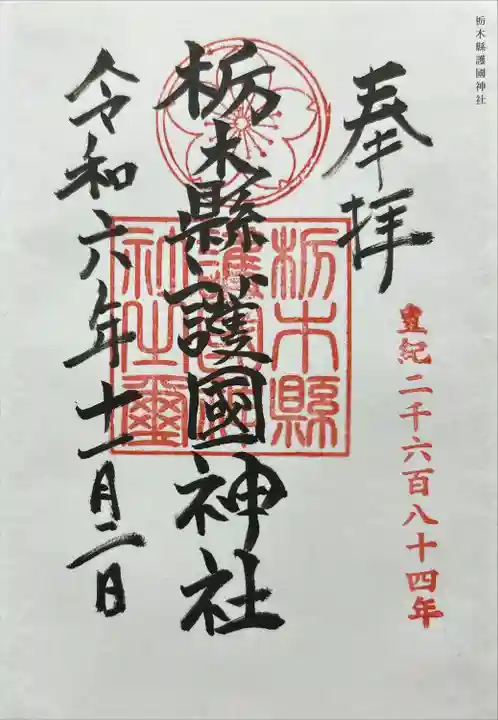 栃木縣護國神社
奉拝
皇紀二千六百八十四年
栃木縣護國神社
栃木縣
護國神
社之璽
令和六年十一月二日